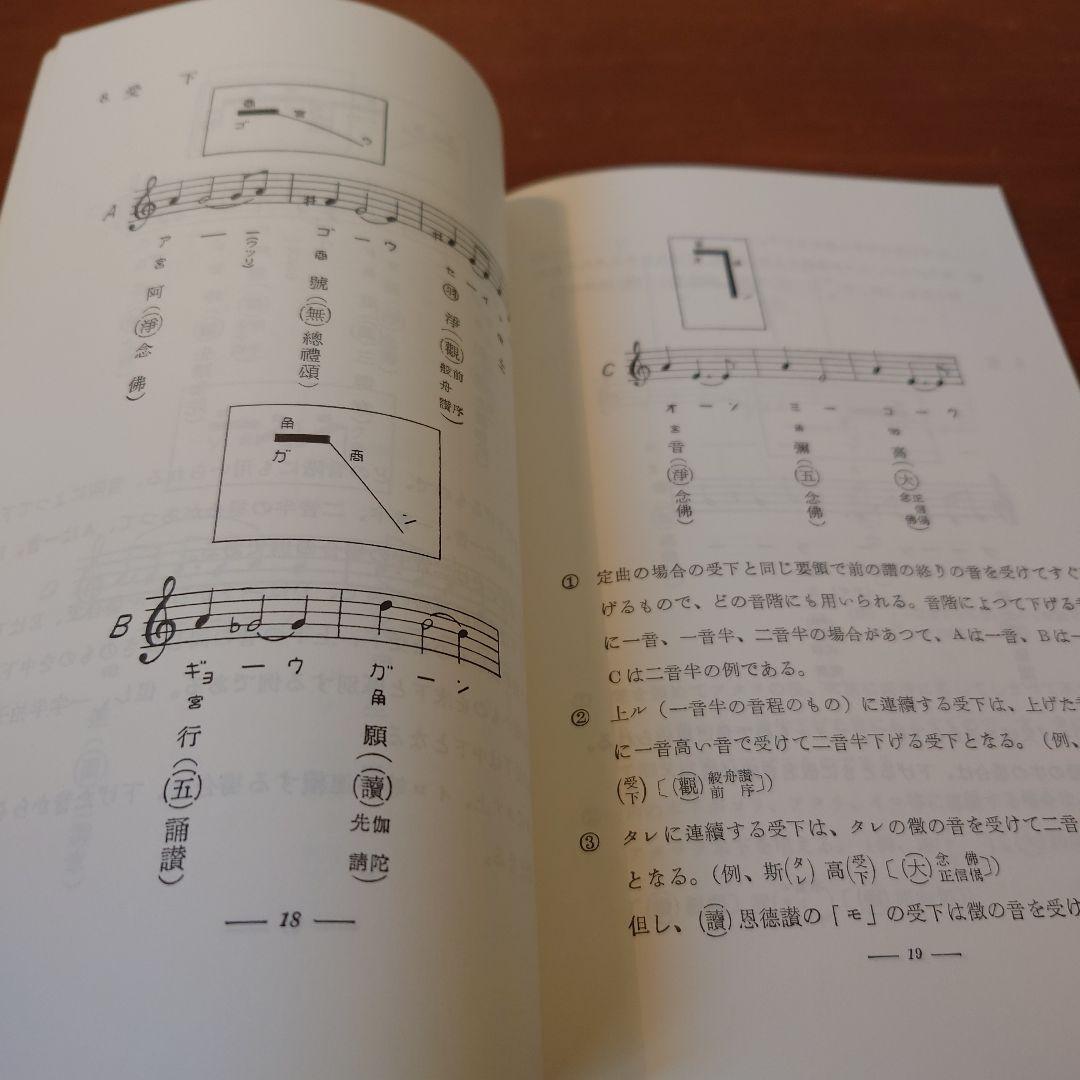 8. 受　下
商
ゴ
宮
ウ
A
ア ー ー(ウツリ)
ゴ ー ウ
宮
商
阿(淨)念佛)
號(無)總禮頌)
淨(觀)般舟讃前序)
角
ガ
商
ン
B
ギョ ー ウ
ガ ー ン
宮
角
行(五)誦讃)
願(讀)先請伽陀)
— 18 —
C
オ ー ン
ミ ー
コ ー ウ
宮
音(淨)念佛)
彌(五)念佛)
高(大)念佛正信偈)
① 定曲の場合の受下と同じ要領で前の譜の終りの音を受けてすぐ
げるもので、どの音階にも用いられる。音階によつて下げる
に一音、一音半、二音半の場合があつて、Aは一音、Bは一
Cは二音半の例である。
② 上ル（一音半の音程のもの）に連續する受下は、上げた
に一音高い音で受けて二音半下げる受下となる。（例、
(受下)〔(觀)般舟讃前序〕)
③ タレに連續する受下は、タレの徵の音を受けて二音
となる。（例、斯(タレ) 高(受下)〔(大)念佛正信偈〕)
但し、(讀)恩德讃の「モ」の受下は徵の音を受け
— 19 —